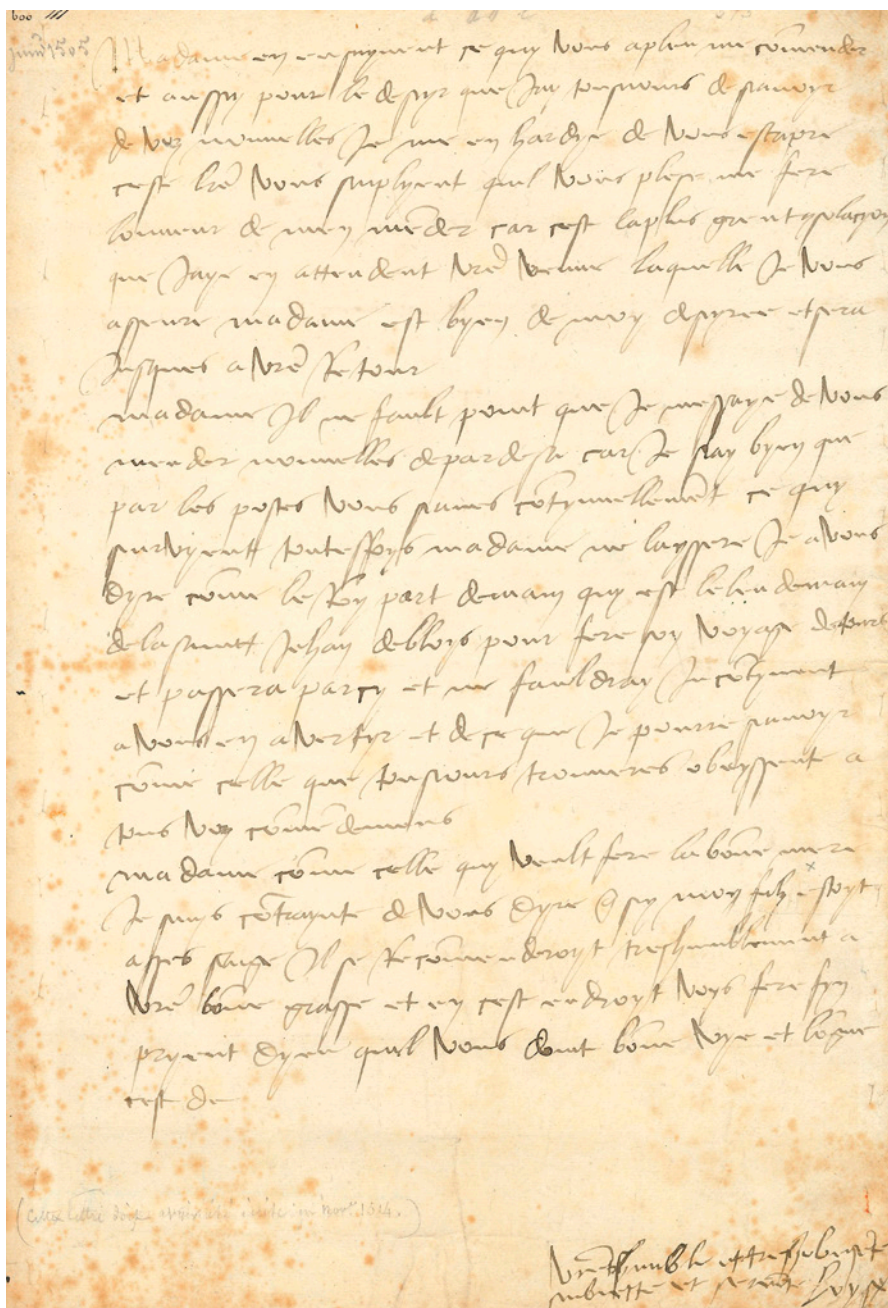 Juing 1505
Madame en ensuyvent ce quy vous a pleu me commender
et aussy pour le desyr que jay tousjours de savoyr
de voz nouvelles je me enhardye de vous escripre
ceste lrē vous suplyent quil vous plese me fere
lonneur de men mēder car cest la plus grent cōsolacyon
que jaye en attendent vrē venue laquelle je vous
asseure madame est byen de moy desyree et sera
jusques a vrē retour
madame il ne fault point que je messaye de vous
mender nouvelles de par desa car je say byen que
par les postes vous saves cōtynuellemēt ce quy
survyent touteffoys madame ne layssere je a vous
dyre cōme le roy part demain quy est le lendemain
de la sainct Jehan de bloys pour fere son voyage de tours
et passera par cy et ne fauldray incōtynent
a vous en avertyr et de ce que je pourre savoyr
cōme celle que tousjours trouveres obeyssente a
tous voz cōmēdemens
madame cōme celle quy veult fere la bōne mere
je suys cōtraynte de vous dyre q̄ sy mon filz estoyt
asses saige il se recōmenderoyt treshumblement a
vrē bōne grasse et en cest endroyt voys fere fyn
pryent dyeu quil vous doint bōne vye et lōgue
cest de
(Cette lettre doit avoir été écrite en nov. 1514.)
vrē treshumble et tresobeisāte
subiette et servāte Loyse